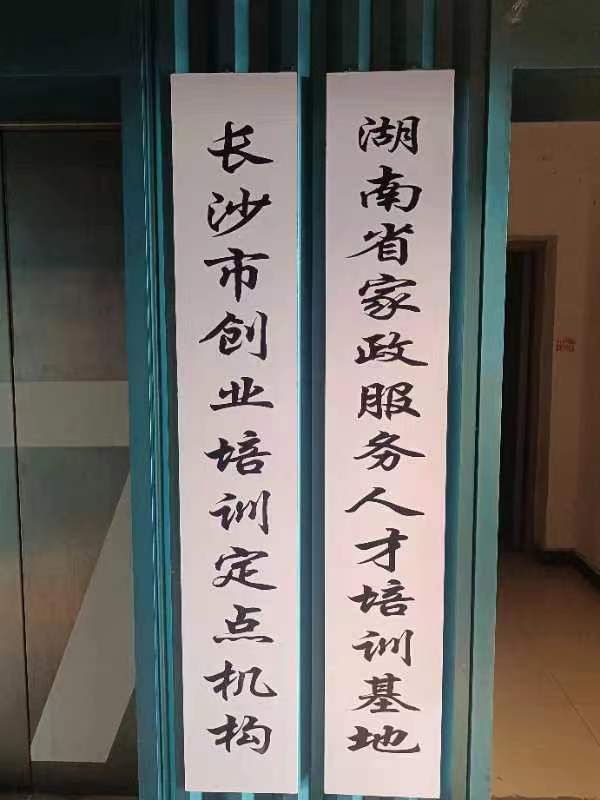 湖南省家政服务人才培训基地
长沙市创业培训定点机构